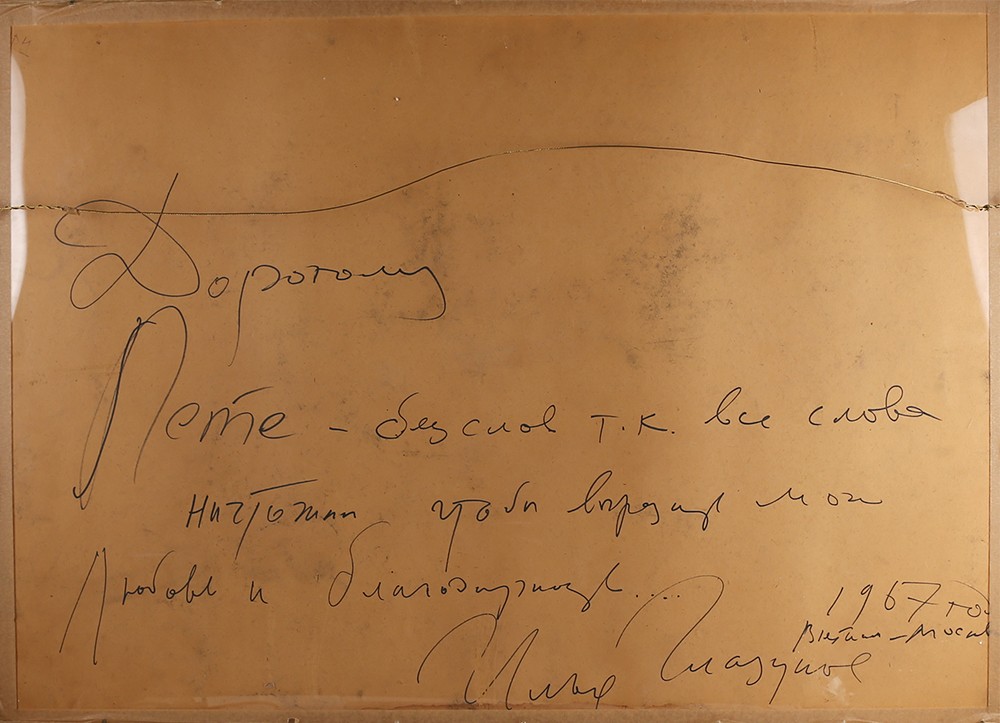 Дорогому
Пете - без слов т.к. все слова
ничтожны чтобы выразить мою
любовь и благодарность....
1967 год
Вьетнам - Москва
Илья Глазунов